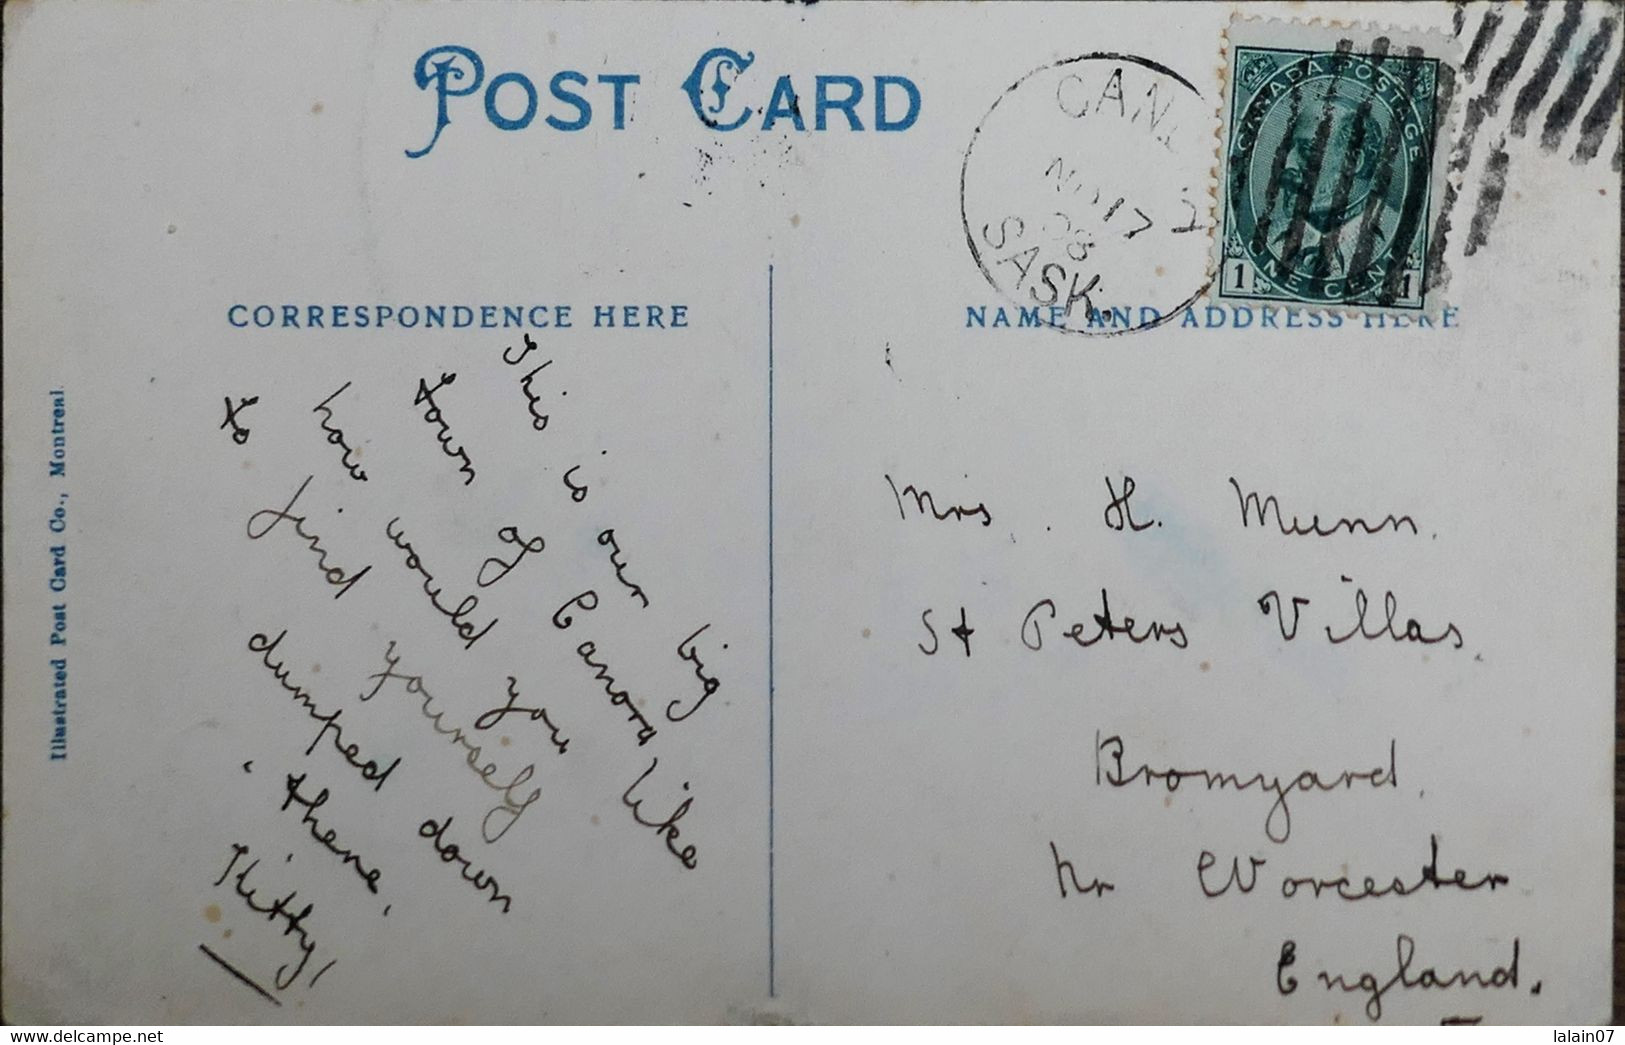 POST CARD
CANADA POSTAGE
1 ONE CENT 1
NO 17
08
SASK.
CORRESPONDENCE HERE
NAME AND ADDRESS HERE
Illustrated Post Card Co., Montreal.
This is our big
town of Canora
how would you like
to find yourself
dumped down
there.
Kitty,
Mrs. H. Munn.
St Peters Villas.
Bromyard.
Nr Worcester
England.
lalain07